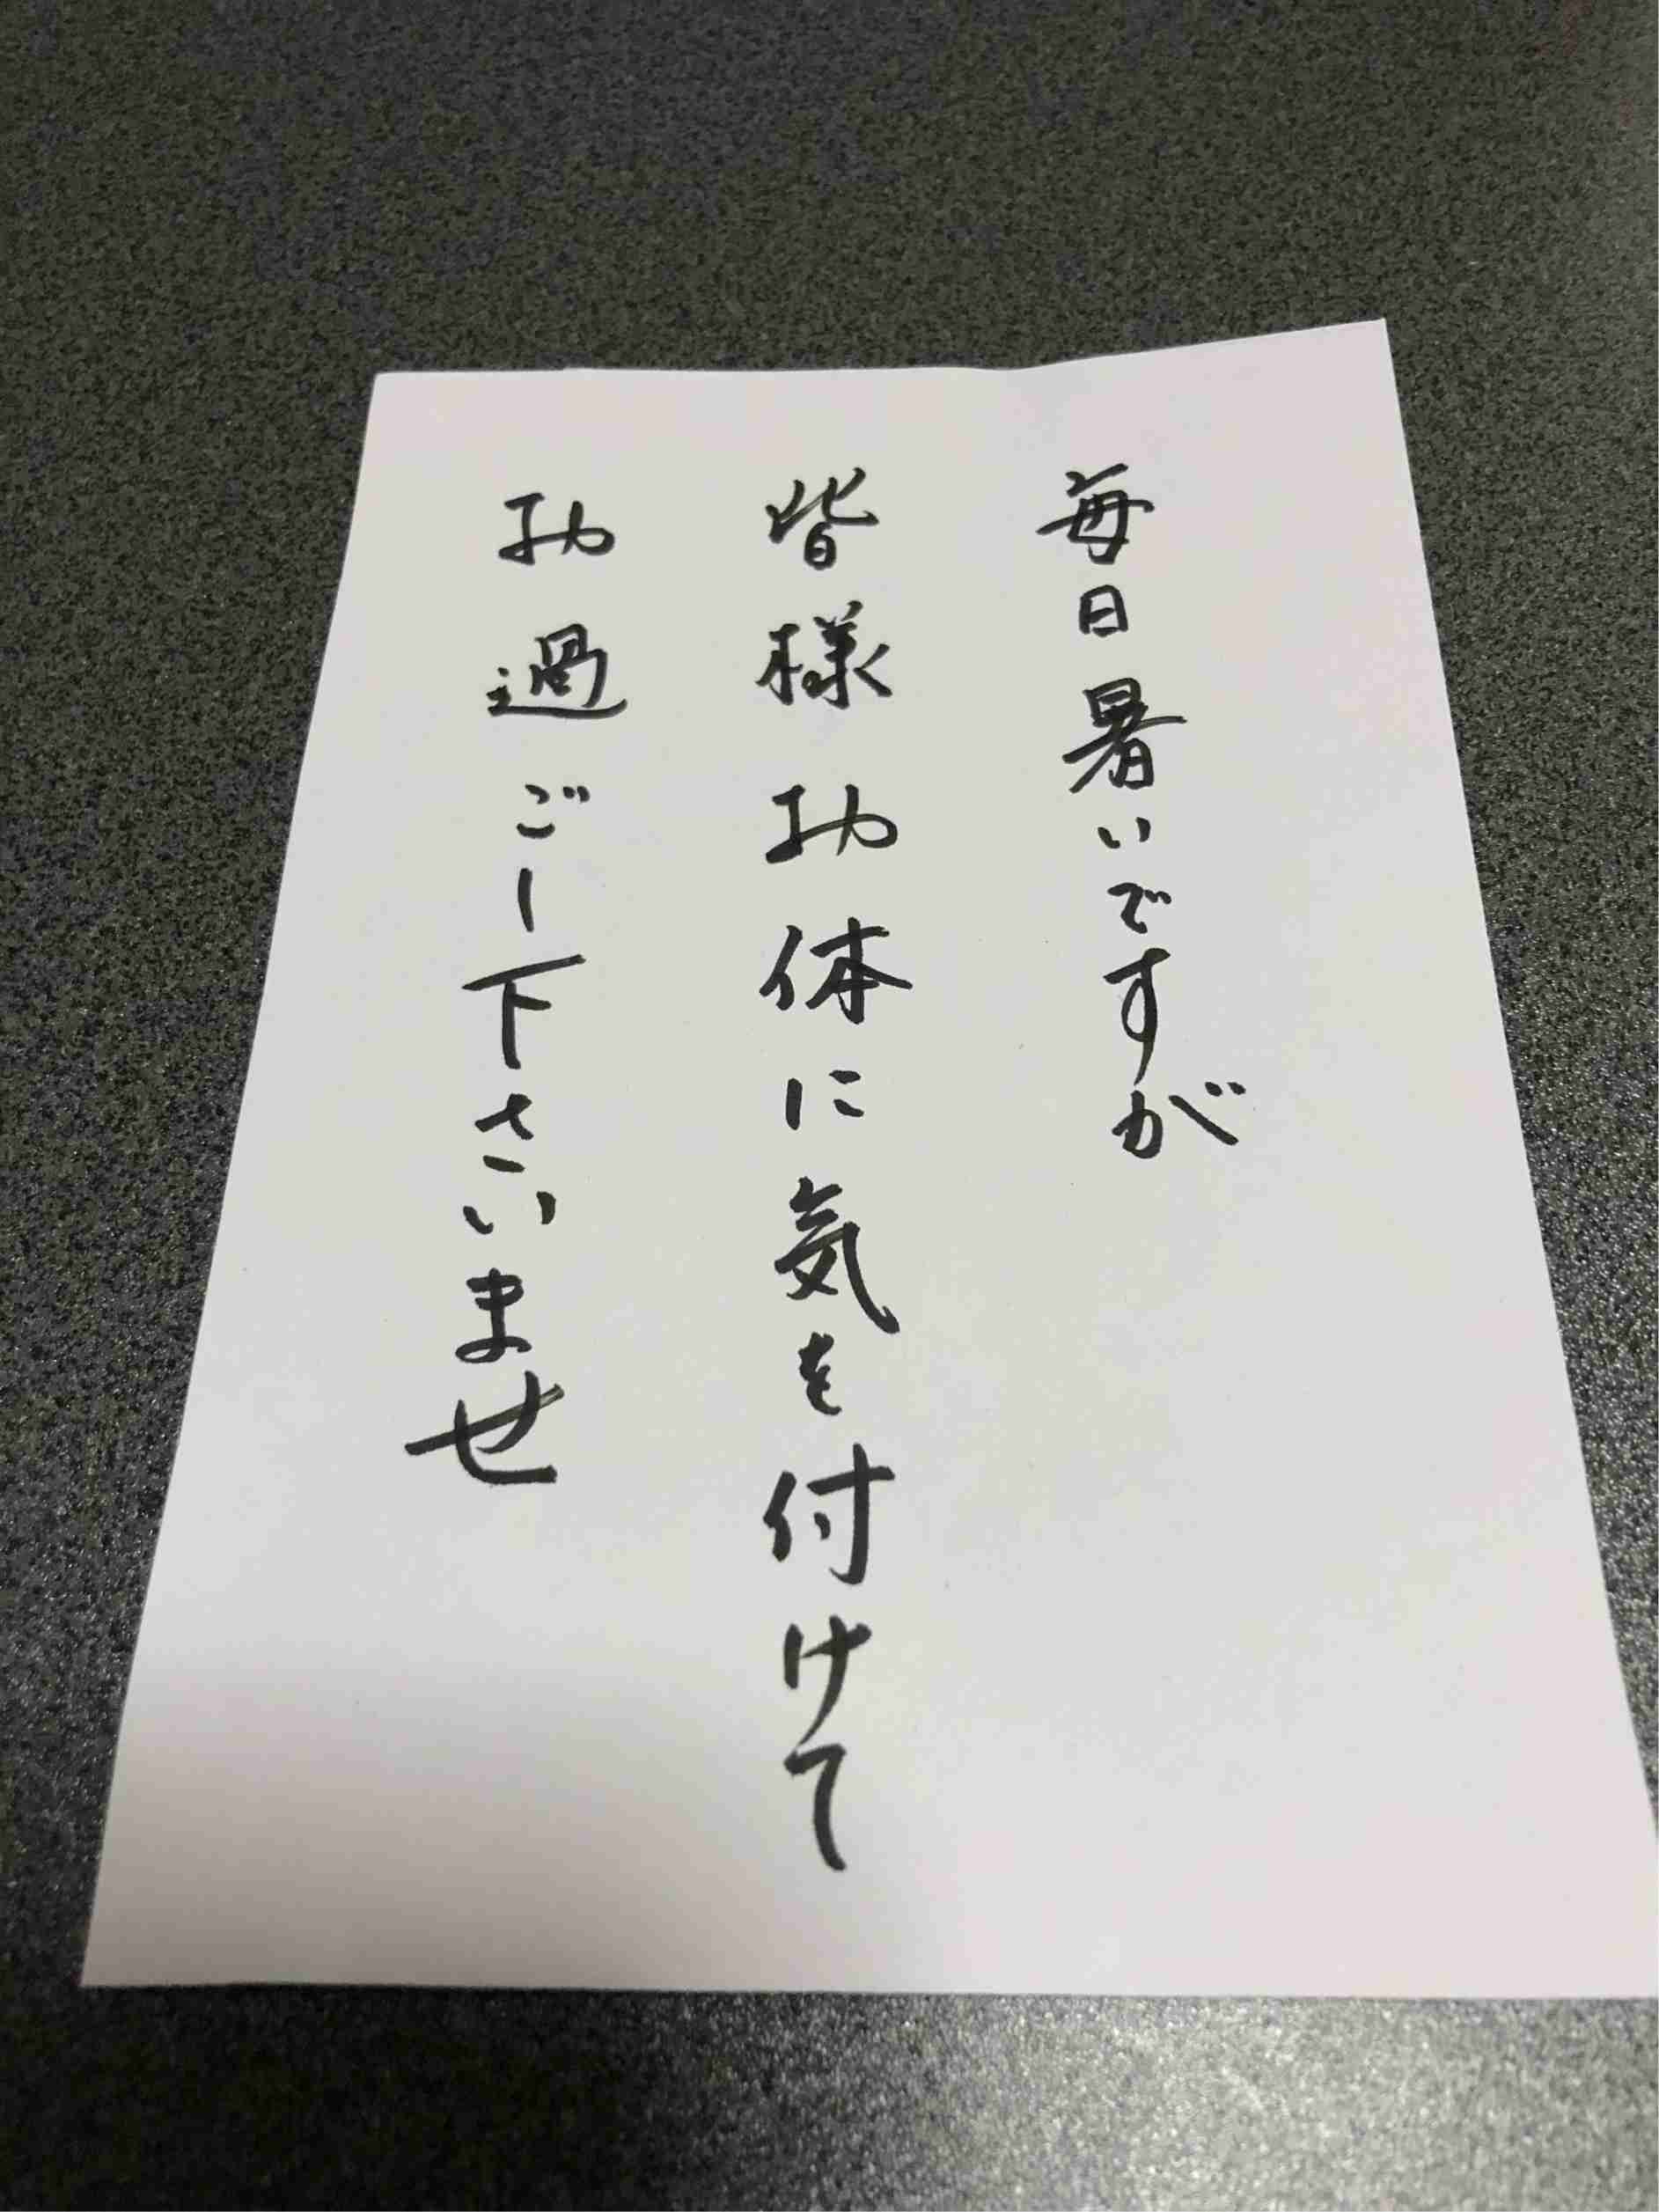 毎日暑いですが
皆様お体に気を付けて
お過ごし下さいませ